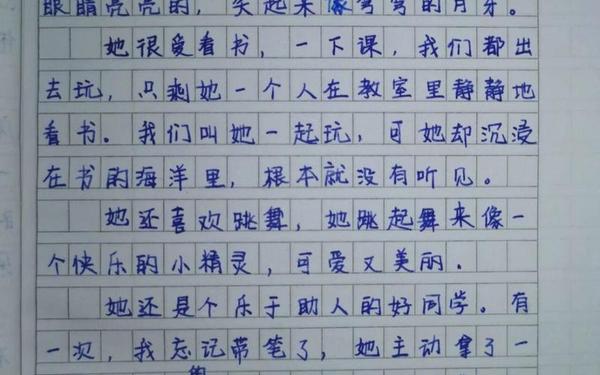 眼睛亮亮的，笑起来像弯弯的月牙。
她很爱看书，一下课，我们都出
去玩，只剩她一个人在教室里静静地
看书。我们叫她一起玩，可她却沉浸
在书的海洋里，根本就没有听见。
她还喜欢跳舞，她跳起舞来像一
个快乐的小精灵，可爱又美丽．
她还是个乐于助人的好同学。有
一次，我忘记带笔了，她主动拿了一